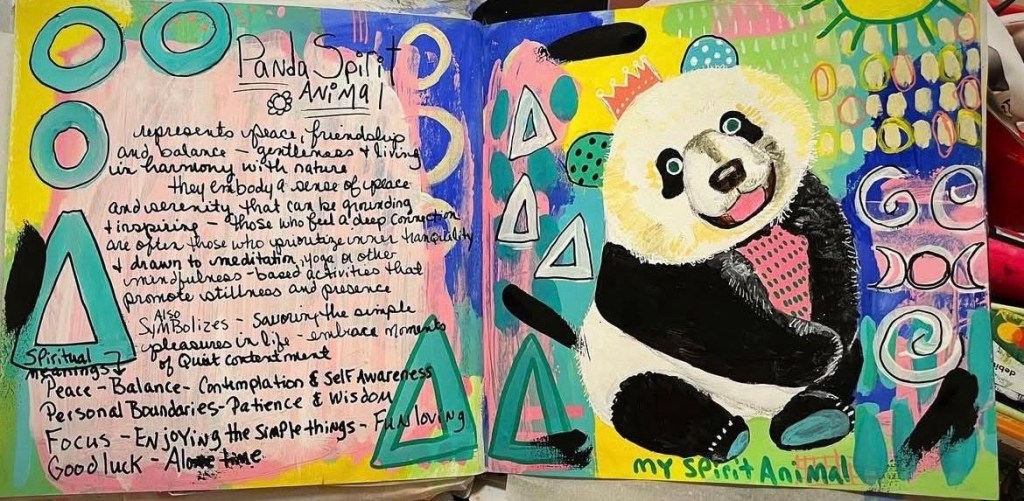 Panda Spirit
Animal
represents peace, friendship
and balance - gentleness & living
in harmony with nature
they embody a sense of peace
and serenity that can be grounding
& inspiring - those who feel a deep connection
are often those who prioritize inner tranquility
& drawn to meditation, yoga or other
mindfulness-based activities that
promote stillness and presence
Also
Symbolizes - savoring the simple
pleasures in life - embrace moments
of Quiet contentment
Spiritual
meanings
Peace - Balance - Contemplation & Self Awareness
Personal Boundaries - Patience & Wisdom
Focus - Enjoying the simple things - Fun loving
Good luck - Alone time
my Spirit Animal